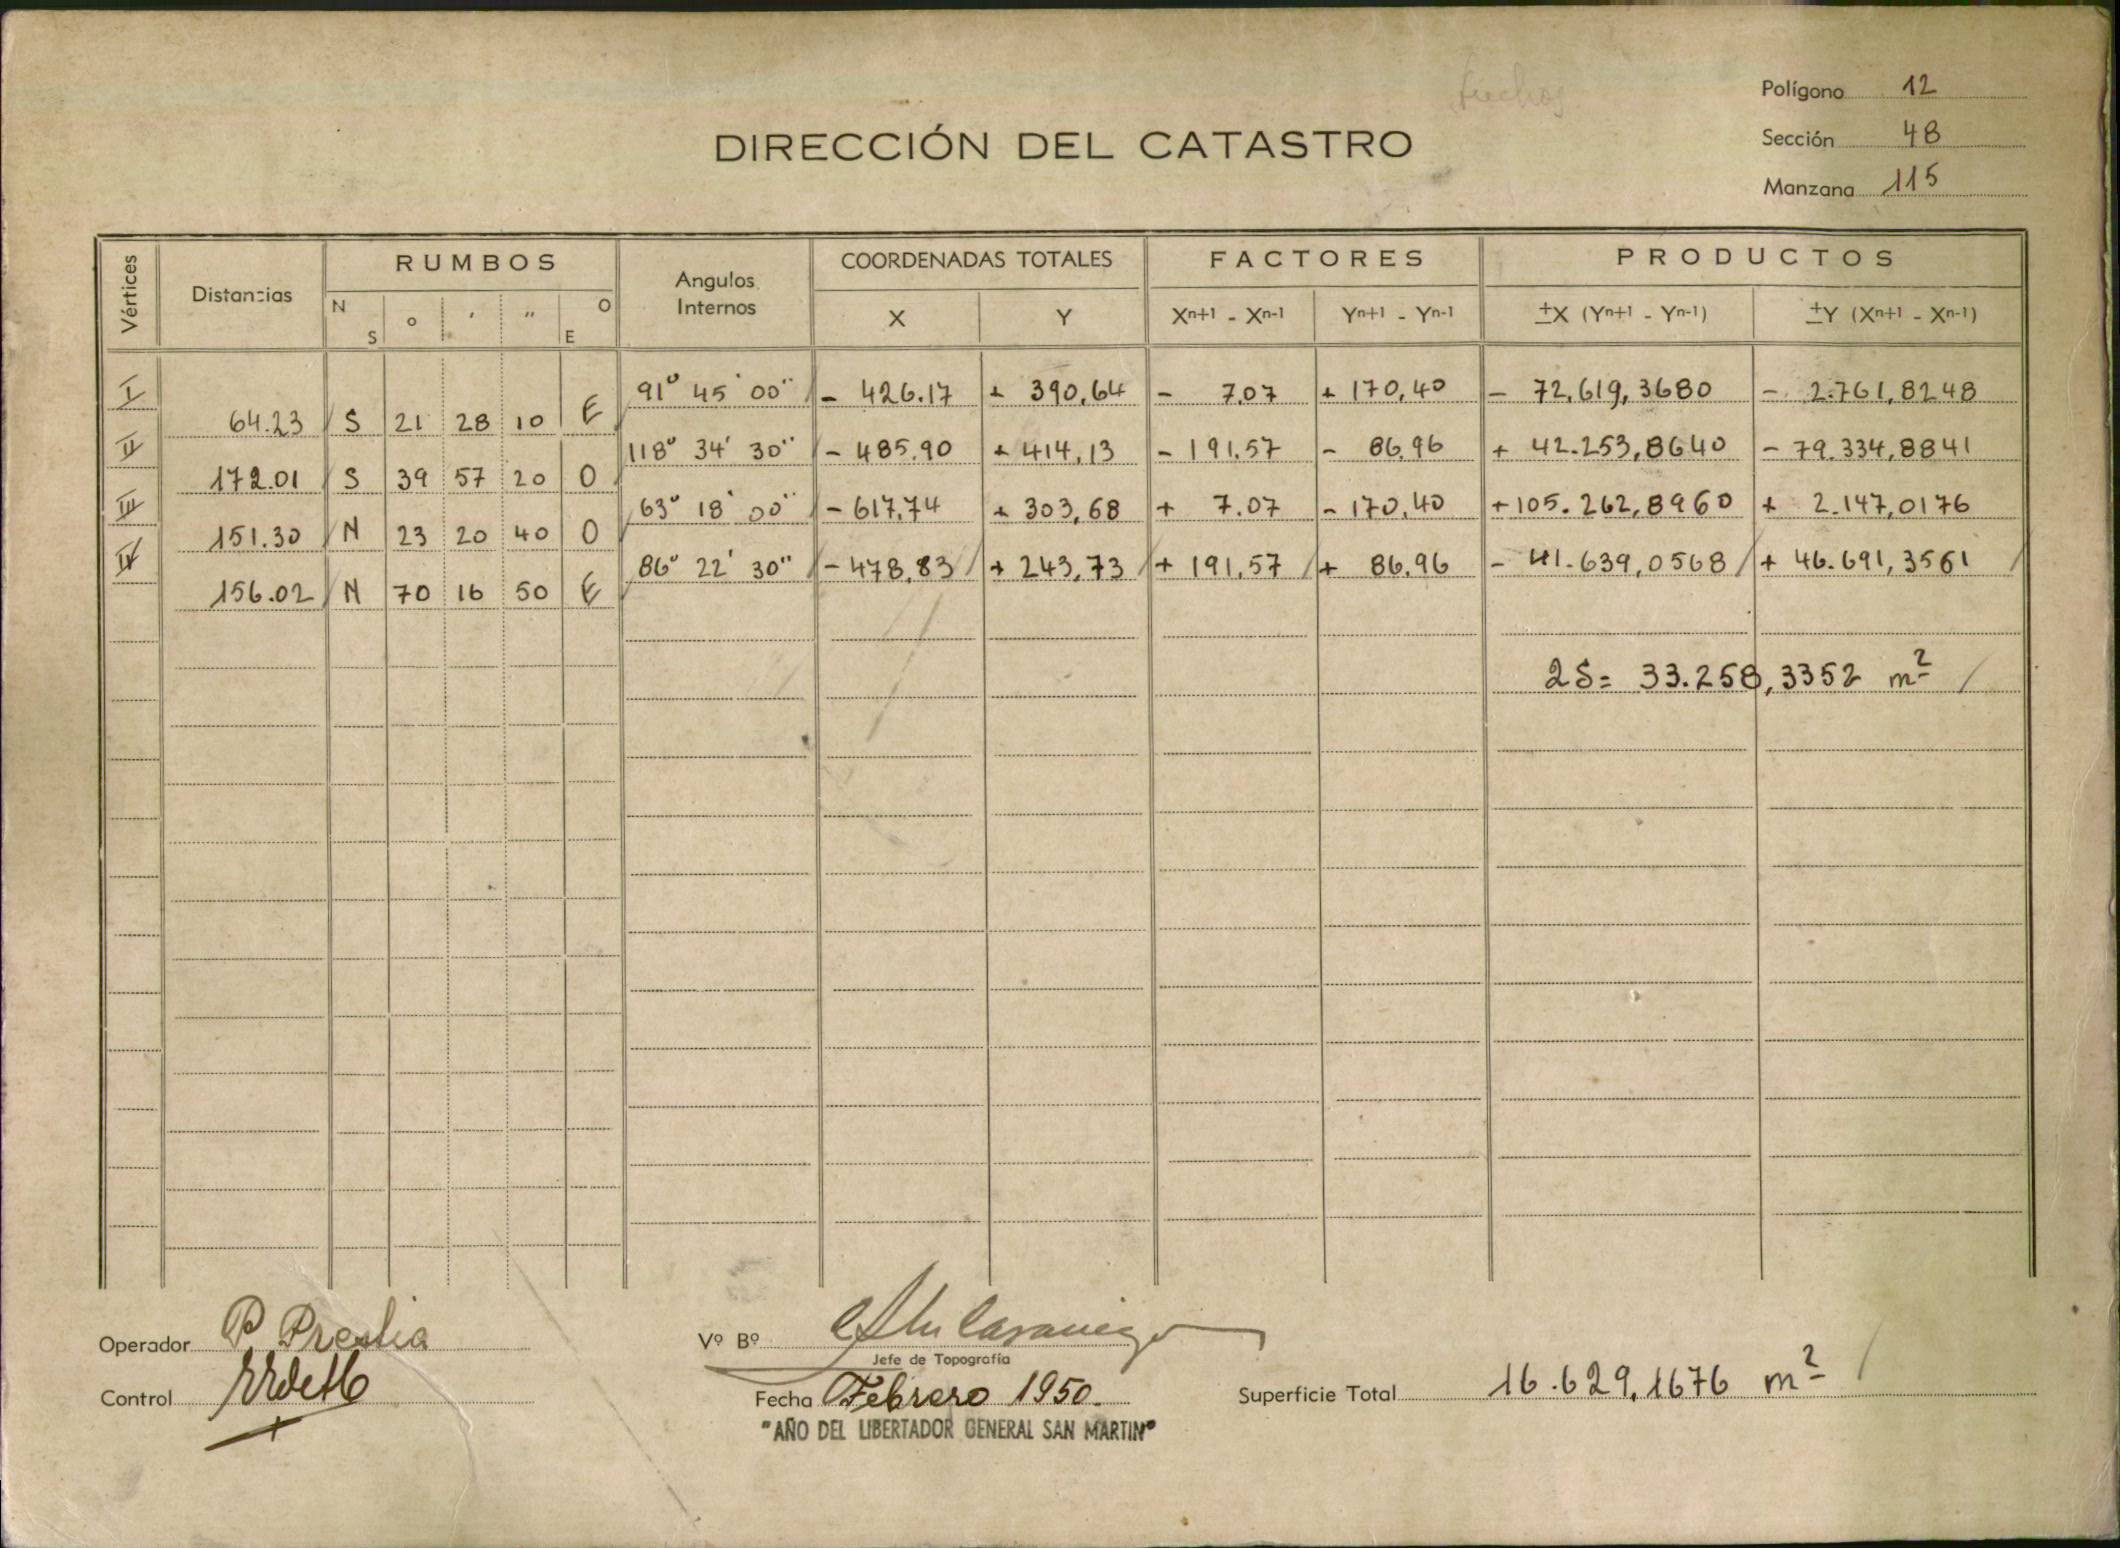 Polígono 12
DIRECCIÓN DEL CATASTRO
Sección 48
Manzana 115
Vértices Distancias RUMBOS Angulos Internos COORDENADAS TOTALES FACTORES PRODUCTOS
N S ° ' " O E X Y Xn+1 - Xn-1 Yn+1 - Yn-1 ±X (Yn+1 - Yn-1) ±Y (Xn+1 - Xn-1)
I 91° 45' 00" - 426.17 + 390,64 - 7,07 + 170,40 - 72,619,3680 - 2.761,8248
64.23 S 21 28 10 E
II 118° 34' 30" - 485,90 + 414,13 - 191,57 - 86,96 + 42.253,8640 - 79.334,8841
172.01 S 39 57 20 O
III 63° 18' 00" - 617,74 + 303,68 + 7.07 - 170,40 + 105.262,8960 + 2.147,0176
151.30 N 23 20 40 O
IV 86° 22' 30" - 478,83 + 243,73 + 191,57 + 86,96 - 41.639,0568 + 46.691,3561
156.02 N 70 16 50 E
2S= 33.258,3352 m²
Operador P. Preslia
Vº Bº
Jefe de Topografía
Control
Fecha Febrero 1950.
Superficie Total 16.629,1676 m²
"AÑO DEL LIBERTADOR GENERAL SAN MARTIN"